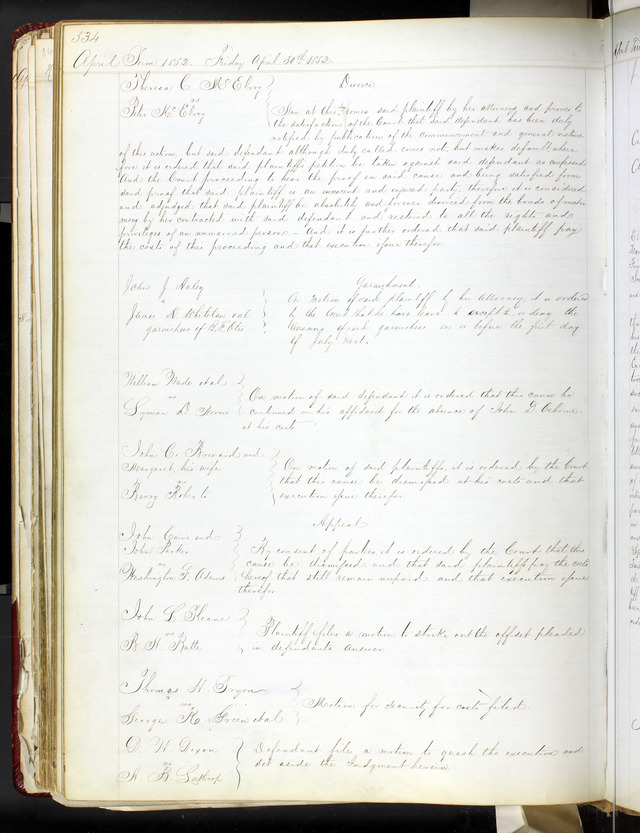 534
April Term 1852. Friday April 30th 1852
Theresa C. McElroy
vs
Peter McElroy
Divorce
Now at this comes said plaintiff by her attorney and proves to
the satisfaction of the Court that said defendant has been duly
notified by publication of the commencement and general nature
of this action, but said defendant although duly called comes not, but makes default where
fore it is ordered that said plaintiffs petition be taken against said defendant as confessed
And the Court proceeding to hear the proof in said cause and being satisfied from
said proof that said plaintiff is an innocent and injured party, therefore it is considered
and adjudged that said plaintiff be absolutely and forever divorced from the bonds of matri
mony by her contracted with said defendant and restored to all the rights and
privileges of an unmarried person — And it is further ordered that said plaintiff pay
the costs of this proceeding and that execution issue therefor
John J. Haley
vs
James R. Whitelaw et al
garnishees of
Garnishment
On motion of said plaintiff by his attorney, it is ordered
by the Court that he have leave to except to or deny the
answer of said garnishees on or before the first day
of July next.
William Wade et al
vs
Lyman B.
On motion of said defendant it is ordered that this cause be
continued on his affidavit for the absence of John D. Osborne
at his costs
John C. Howard and
Margaret his wife
vs
On motion of said plaintiffs, it is ordered by the Court
that this cause be dismissed at his costs and that
execution issue therefor
Appeal
John and
John
vs
Washington F. Adams
By consent of parties it is ordered by the Court that this
cause be dismissed and that said plaintiff pay the costs
hereof that still remain unpaid and that execution issue
therefor
John L.
vs
B. H. Batte
Plaintiff files a motion to strike out the offset pleaded
in defendants answer
Thomas N. Bryon
vs
George K. Green et al
Motion for security for costs filed
D. W. Dixon
vs
Defendant file a motion to quash the execution and
set aside the Judgment herein